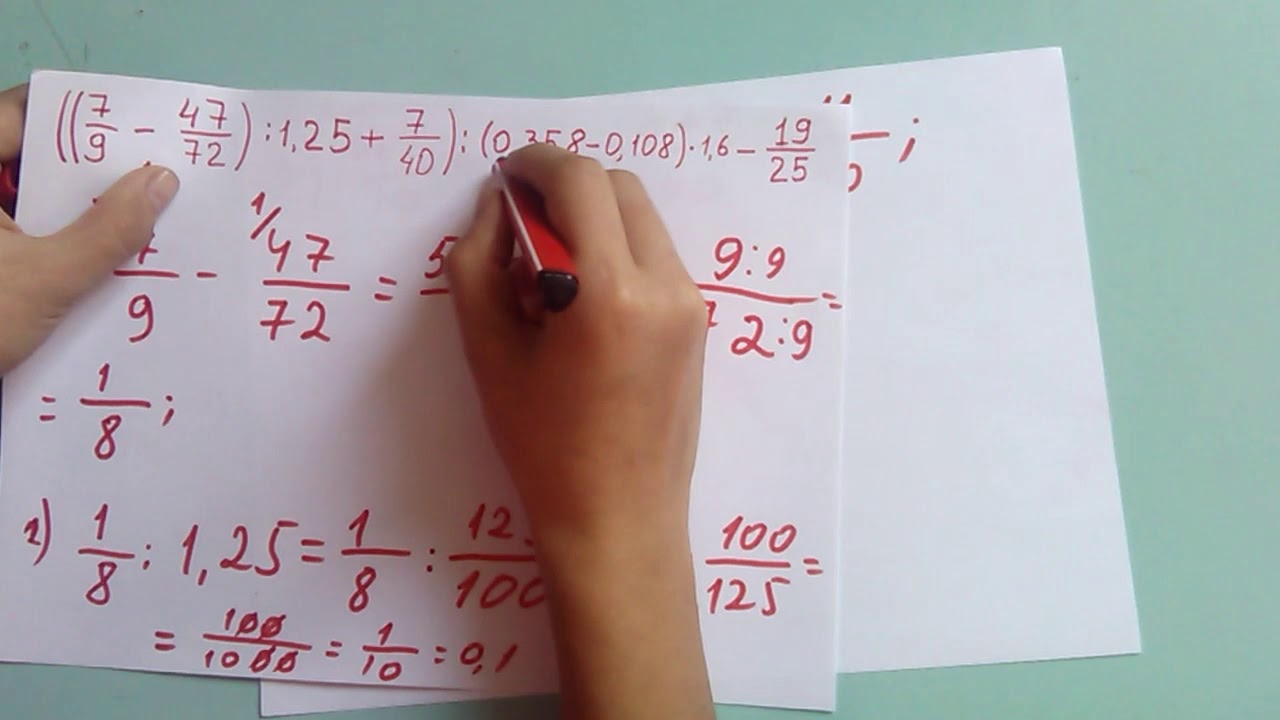 ((7/9 − 47/72) : 1,25 + 7/40) : (0,358−0,108)·1,6 − 19/25
7/9 − 1/47/72 = 5 9:9/72:9 =
= 1/8 ;
2) 1/8 : 1,25 = 1/8 : 12 /100 100/125 =
= 100/1000 = 1/10 = 0,1
;